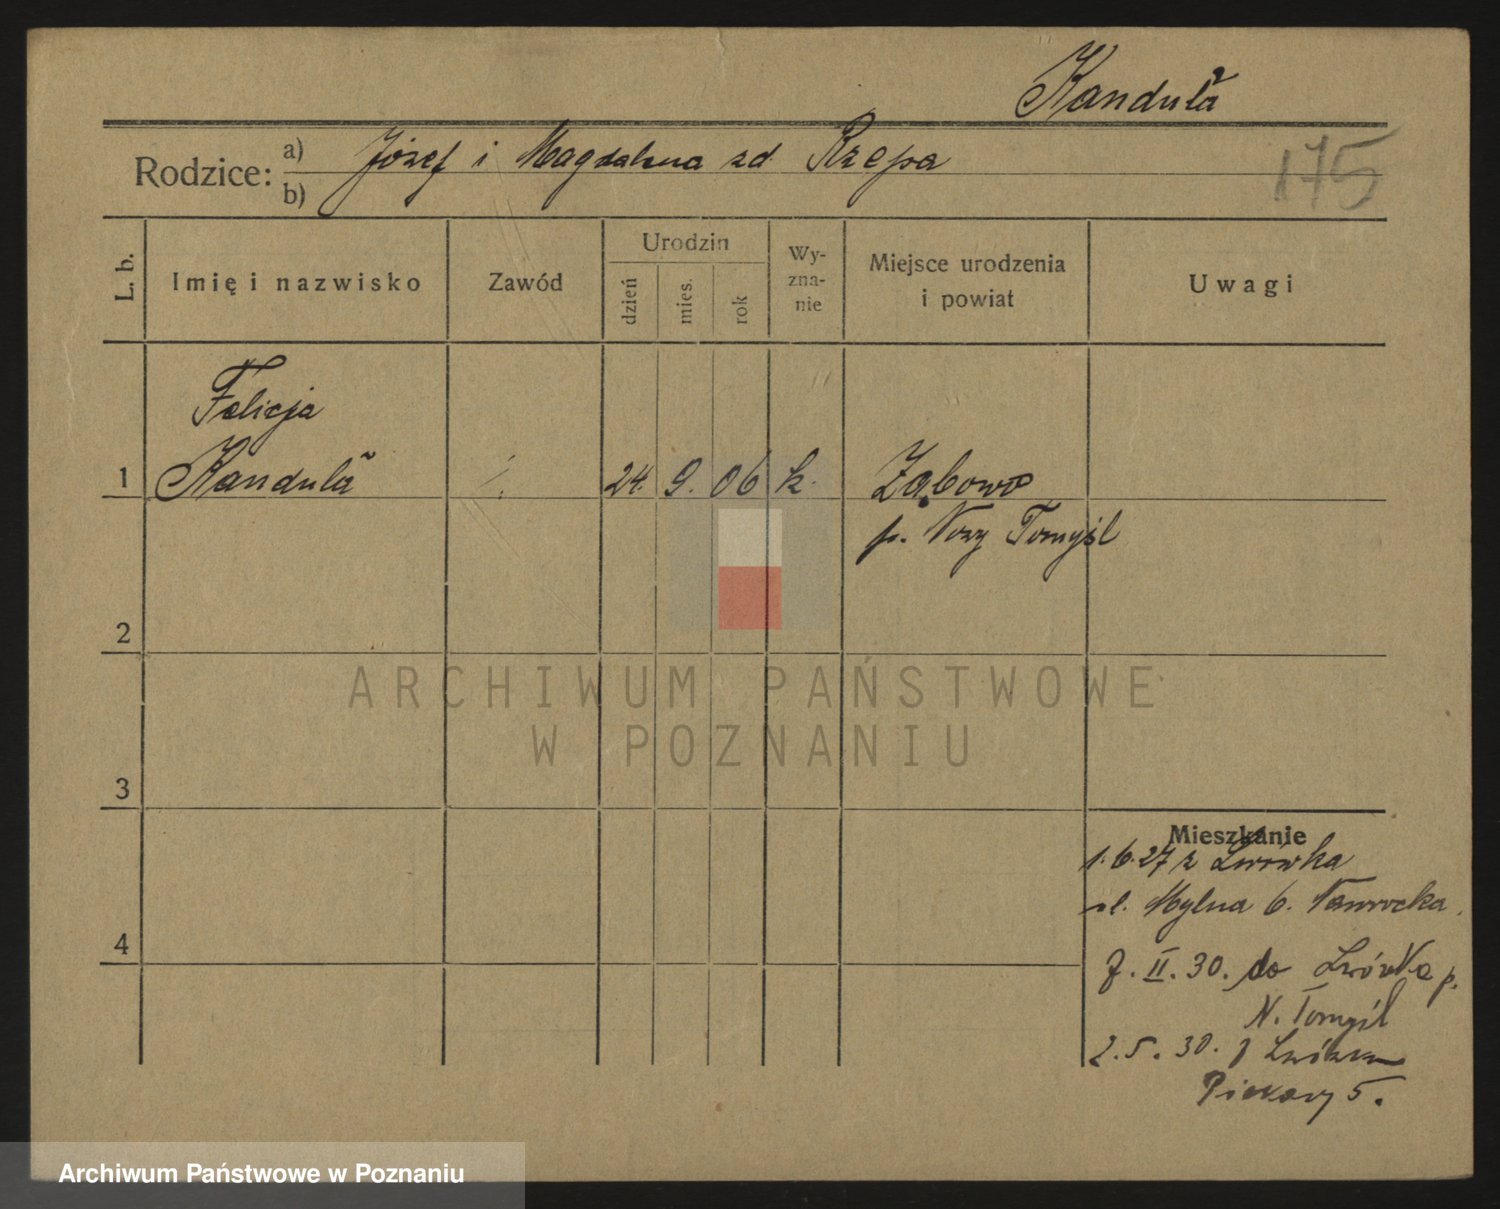 Kanduła
Rodzice: a) b) Józef i Magdalena zd Rzepa
175
L. b.
Imię i nazwisko
Zawód
Urodzin
dzień
mies.
rok
Wy-
zna-
nie
Miejsce urodzenia
i powiat
Uwagi
Felicja
1 Kanduła 24. 9. 06 k. Ząbowo
p. Nowy Tomyśl
2
ARCHIWUM PAŃSTWOWE
W POZNANIU
3
Mieszkanie
1.6.27 z Lwówka
ul. Mylna 6. Nawrocka.
4
7. II. 30. do Lwówka p.
N. Tomyśl
2.5.30. Lwówka
Piekary 5.
Archiwum Państwowe w Poznaniu